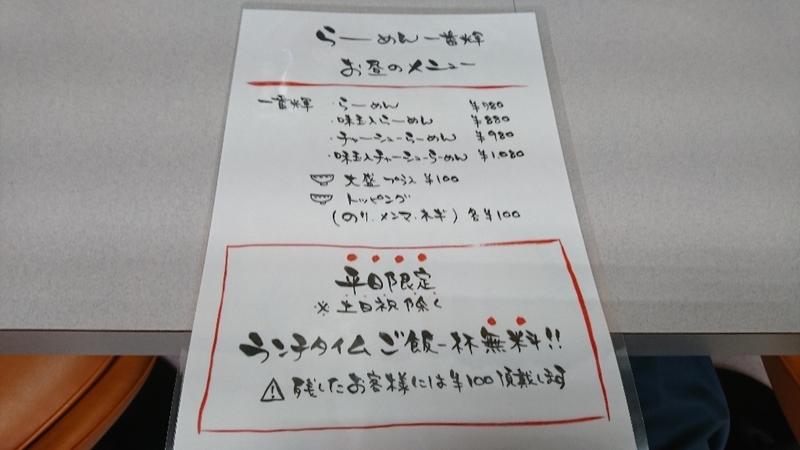 らーめん一番輝
お昼のメニュー
一番輝 ・らーめん ¥780
・味玉入らーめん ¥880
・チャーシューらーめん ¥980
・味玉入チャーシューらーめん ¥1,080
大盛プラス ¥100
トッピング
(のり、メンマ、ネギ) 各¥100
平日限定
※土日祝除く
ランチタイム ご飯一杯無料!!
残したお客様には¥100頂戴します